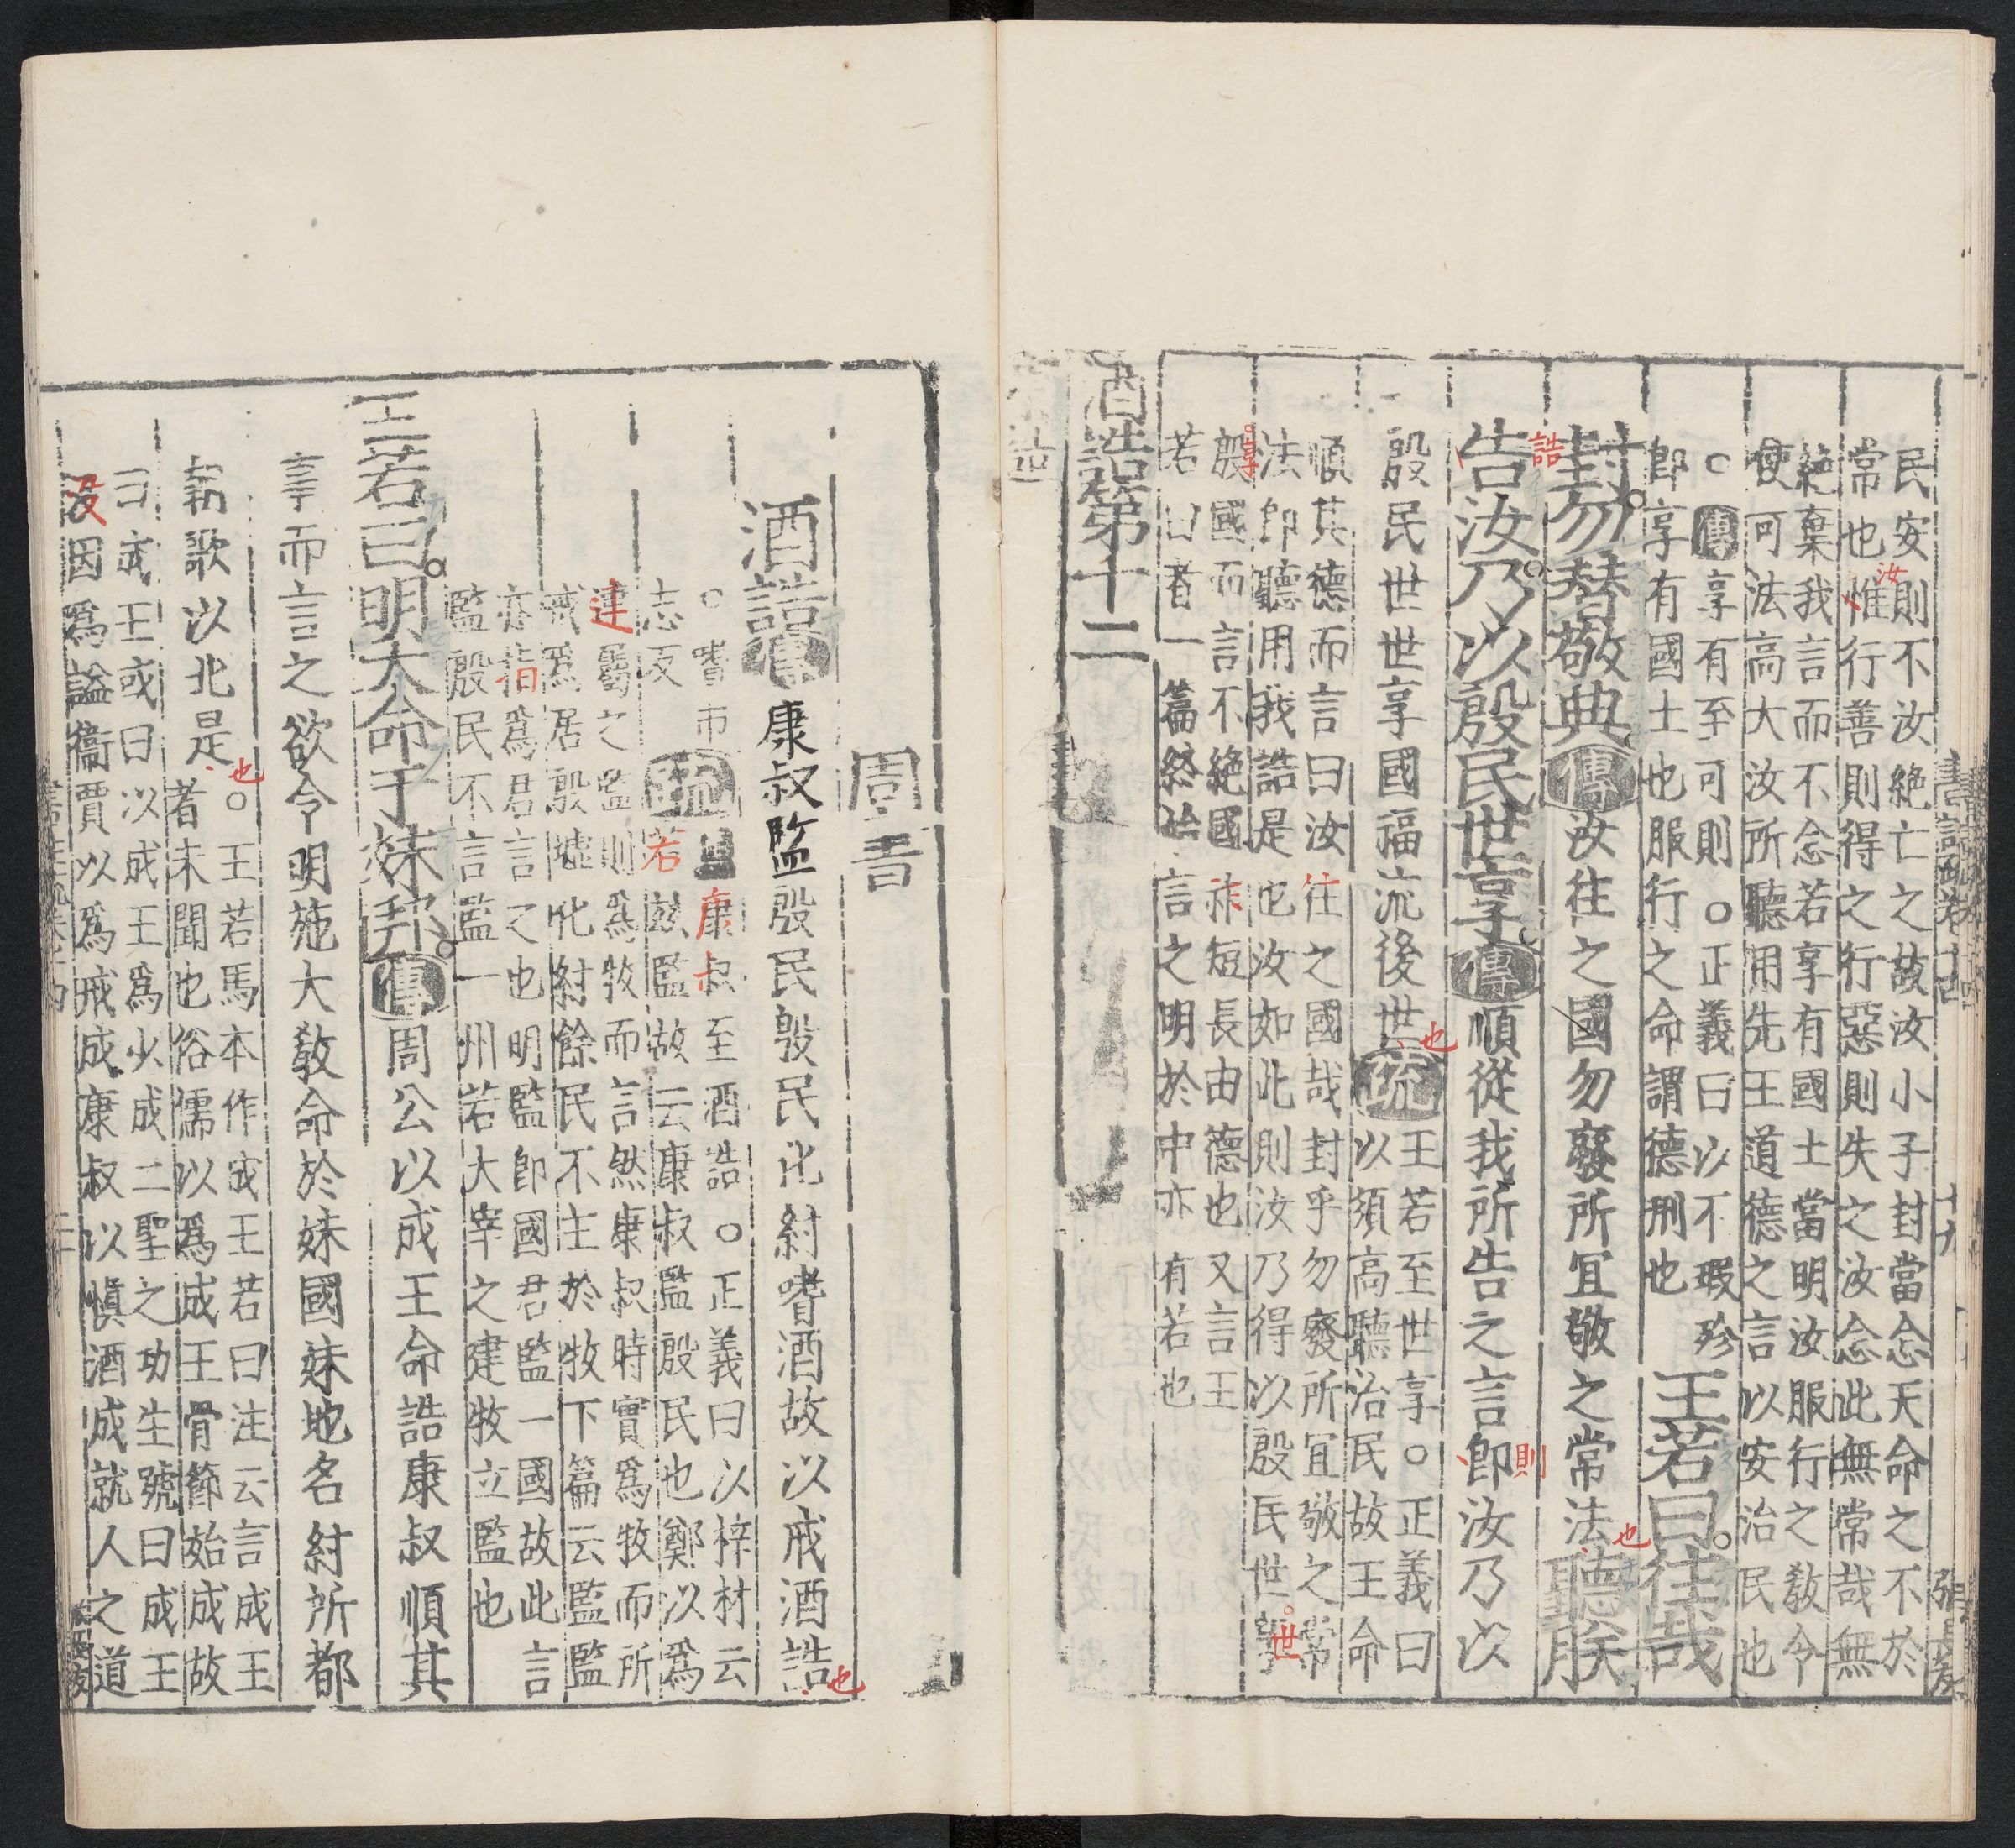 民安則不汝絶亡之故汝小子封當念天命之不於
常也惟行善則得之行惡則失之汝念此無常哉無
汝
絶棄我言而不念若享有國土當明汝服行之敎令
使可法高大汝所聽用先王道德之言以安治民也
○傳享有至可則○正義曰以不瑕殄
即享有國土也服行之命謂德刑也
王若曰往哉
封勿替敬典傳汝往之國勿廢所宜敬之常法也聽朕
誥
告汝乃以殷民世享傳順從我所告之言即汝乃以
則
殷民世世享國福流後世也疏
王若至世享○正義曰
以須高聽治民故王命
順其德而言曰汝往之國哉封乎勿廢所宜敬之常
法即聽用我誥是也汝如此則汝乃得以殷民世享
世
享
殷國而言不絶國祚短長由德也又言王
若曰者一篇終始言之明於中亦有若也
酒誥第十二
書註疏卷十四
十九
周書
酒誥傳康叔監殷民殷民化紂嗜酒故以戒酒誥也
○嗜市
志反
疏
康叔至酒誥○正義曰以梓材云
若玆監故云康叔監殷民也鄭以爲
連屬之監則爲牧而言然康叔時實爲牧而所
戒爲居殷墟化紂餘民不主於牧下篇云監監
亦指爲君言之也明監即國君監一國故此言
監殷民不言監一州若大宰之建牧立監也
王若曰明大命于妹邦傳周公以成王命誥康叔順其
事而言之欲令明施大敎命於妹國妹地名紂所都
朝歌以北是也○王若馬本作成王若曰注云言成王
者未聞也俗儒以爲成王骨節始成故
曰成王或曰以成王爲少成二聖之功生號曰成王
没因爲謚衞賈以爲戒成康叔以愼酒成就人之道